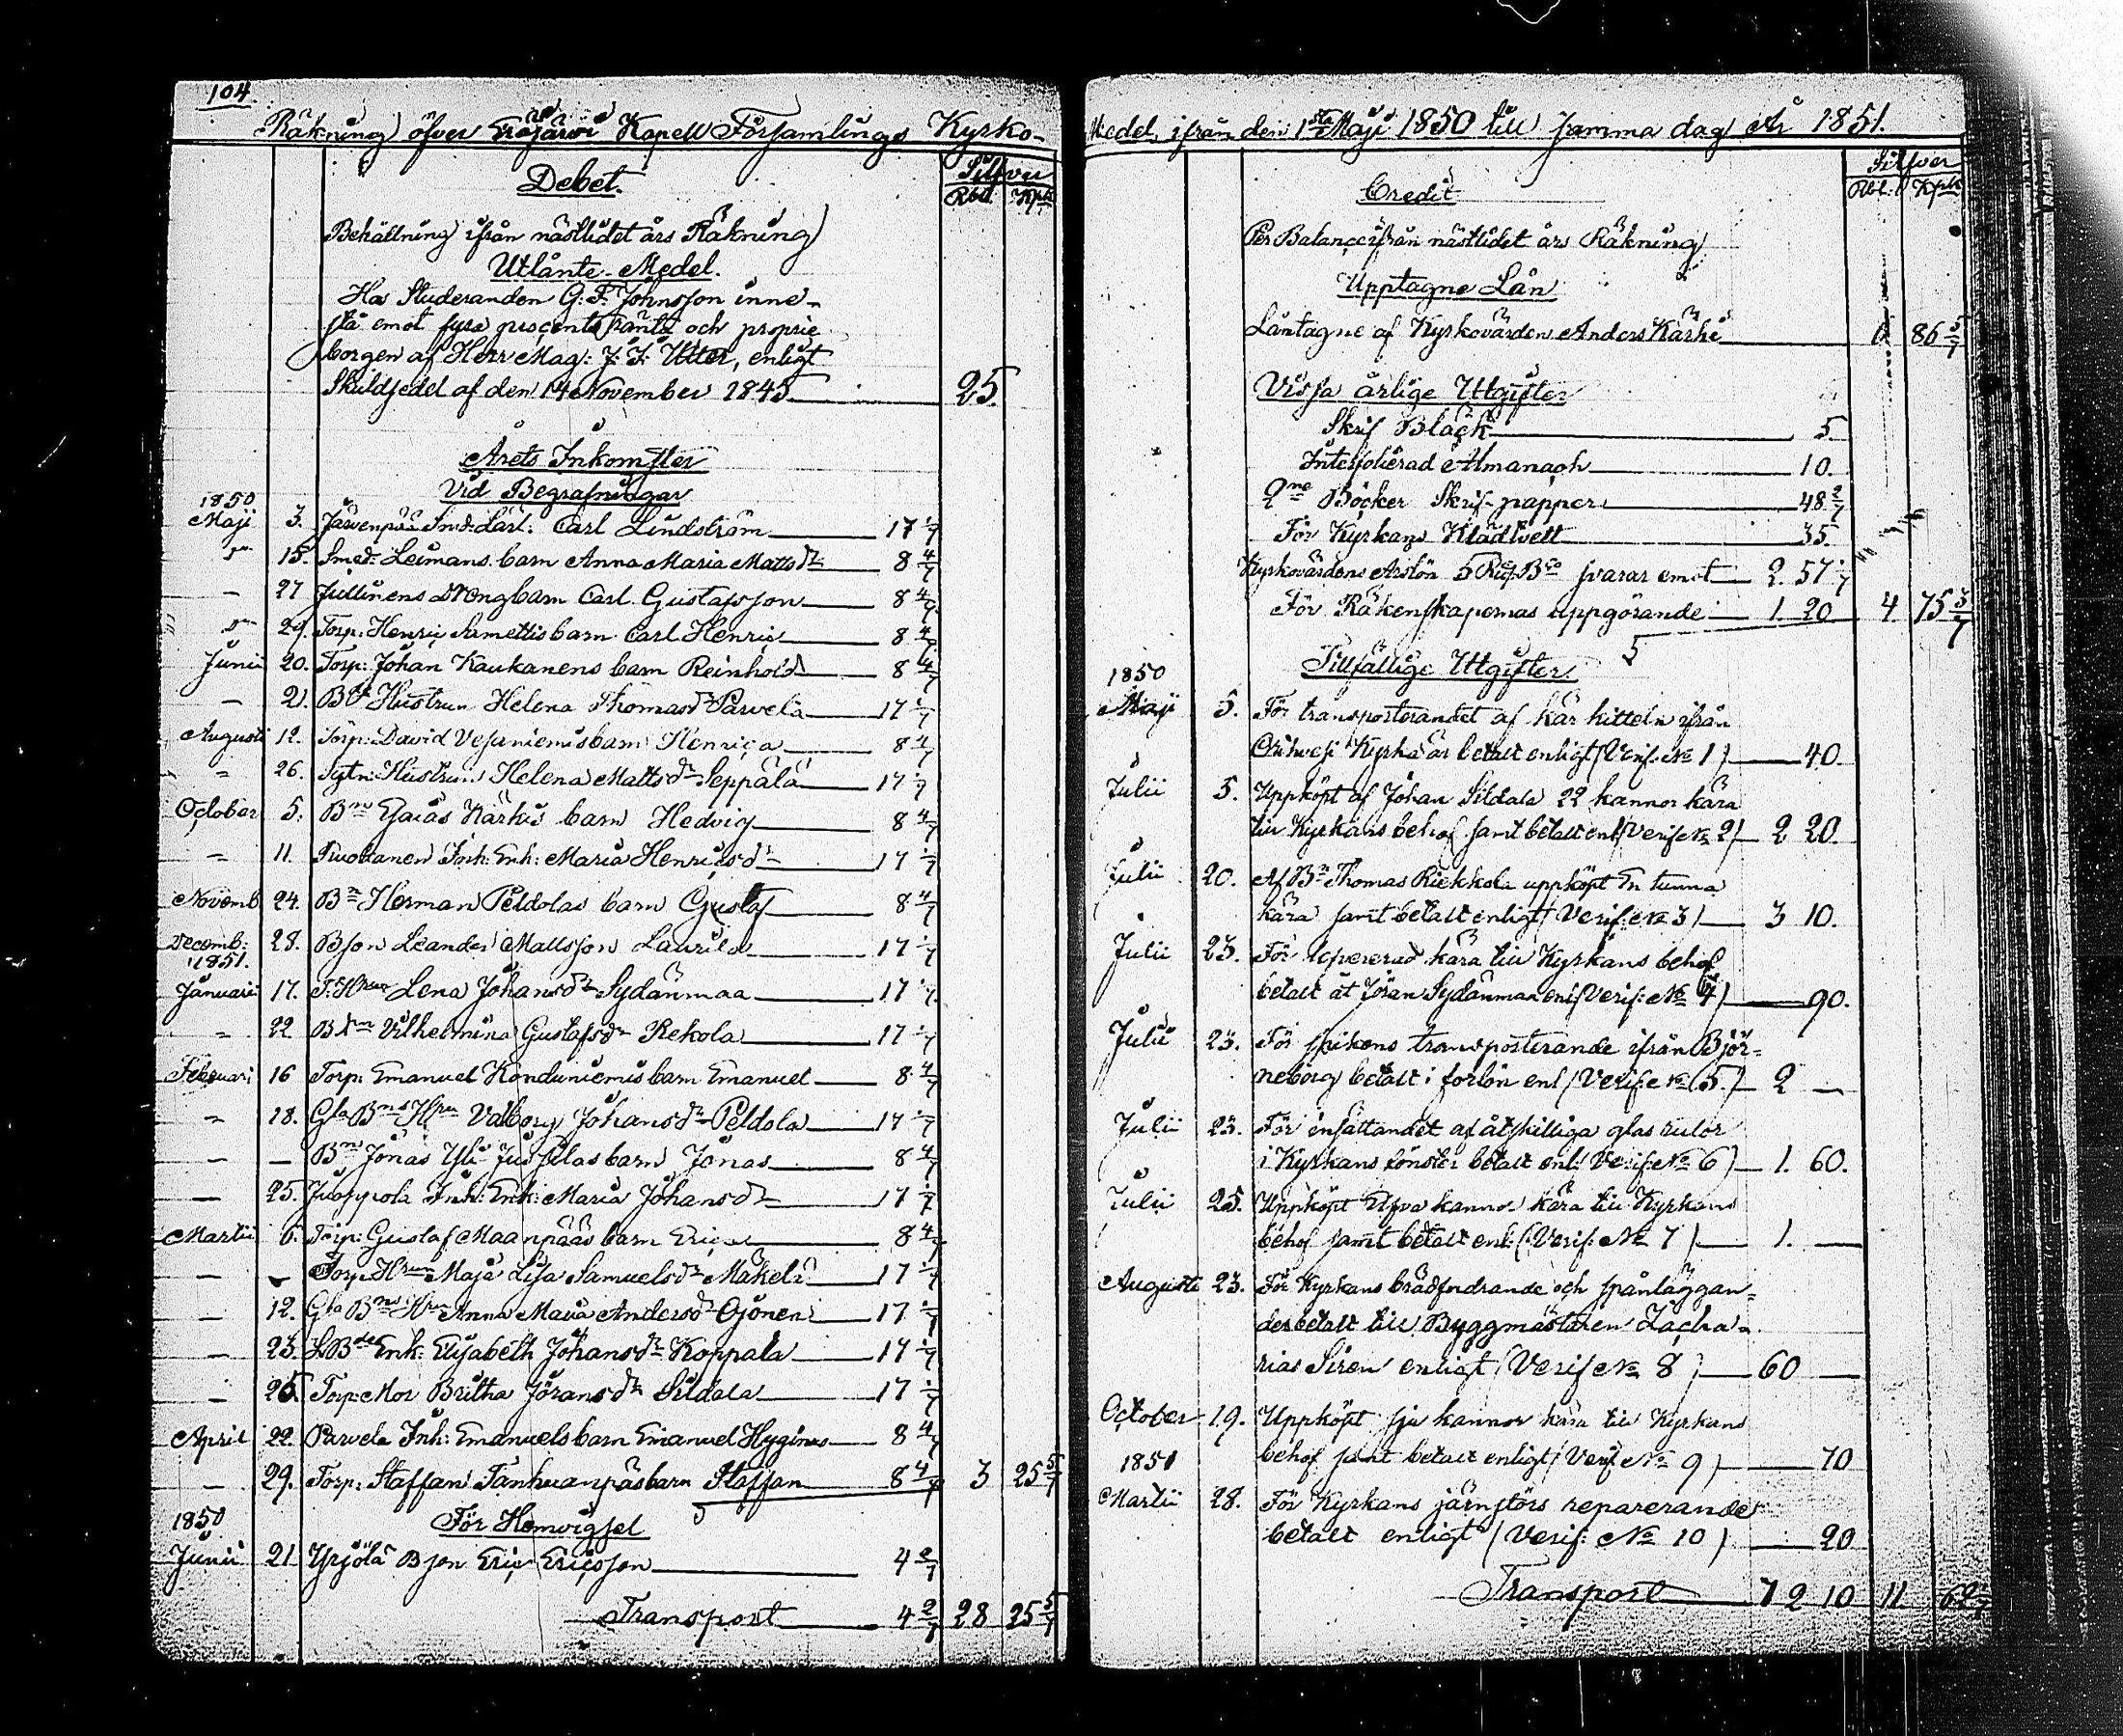 104.
Räkning öfver Eräjärvi Kapell Församlings Kyrko-
Debet.
Silfver
Rbl. Kpk
Behållning ifrån nästlidet års Räkning
Utlånte Medel.
Hos Studeranden G: F: Johnsson inne-
stå emot fyra procents ränta och proprie
borgen af Herr Mag: J: F: Utter, enligt
Skuldsedel af den 14 November 1845 25.
Årets Inkomster
Vid Begrafningar
1850
Maji 3. Järvenpää Smd: Lärl: Carl Lindström 17 1/7
" 15. Smed: Leimans barn Anna Maria Mattsdr 8 4/7
- 27 Jullinens Drengbarn Carl Gustafsson 8 4/7
" 29. Torp: Henric Samettis barn Carl Henric 8 4/7
Junii 20. Torp: Johan Kaukanens barn Reinhold 8 4/7
- 21. Bds Hustrun Helena Thomasdr Parvela 17 1/7
Augusti 12. Torp: David Vesaniemis barn Henrica 8 4/7
" 26. Sytn: Hustrun Helena Mattsdr Seppälä 17 1/7
October 5. Bn Esaias Kärkis barn Hedvig 8 4/7
" 11. Tuokanen Inh: Enk: Maria Henricsdr 17 1/7
Novemb 24. Bn Herman Peldolas barn Gustaf 8 4/7
Decemb: 28. Bson Leander Mattsson Laurila 17 1/7
1851.
Januarii 17. T: Hrun Lena Johansdr Sydänmaa 17 1/7
" 22 Btrn Vilhelmina Gustafsdr Rekola 17 1/7
Februari 16 Torp: Emanuel Konduniemis barn Emanuel 8 4/7
" 18. Gla Bns Hru Valborg Johansdr Peldola 17 1/7
- - Bn Jonas Yli Jussilas barn Jonas 8 4/7
- 25. Juoppola Inh: Enk: Maria Johansdr 17 1/7
Martii 6. Torp: Gustaf Maanpääs barn Erica 8 4/7
- - Torp Hrun Maja Lisa Samuelsdr Mäkelä 17 1/7
- 12. Gla Bns Hru Anna Maria Andersdr Ojonen 17 1/7
- 23. Enk: Elisabeth Johansdr Koppala 17 1/7
- 25. Torp: Mor Britha Jöransdr Sildala 17 1/7
April 22. Parvela Inh: Emanuels barn Emanuel Hyginus 8 4/7
- 29. Torp: Staffan Tanhuanpäs barn Staffan 8 4/7 3 25 5/7
1850 För Hemvigsel
Junii 21 Yrjölä Bson Eric Ericsson 4 2/7
Transport 4 2/7 28 25 5/7
Medel, ifrån den 1sta Maji 1850 till samma dag År 1851.
Credit
Silfver
Rbl: Kpk
Per Balance ifrån nästlidet års Räkning
Upptagne Lån
Låntagne af Kyrkovärden Anders Kärki 6 86 5/7
Vissa årlige Utgifter
Skrif Bläck 5
Interfolierad Almanach 10.
2ne Böcker Skrif-papper 48 2/7
För Kyrkans Klädtvett 35.
Kyrkovärdens Årslön 5 Rig. Bco svarar emot 2. 57 1/7
För Räkenskapernas uppgörande 1. 20 4 75 3/7
Tillfällige Utgifter
1850
Maji 5. För transporterandet af kär kitteln ifrån
Orihvesi Kyrka är betalt enligt (Verif: No 1) 40.
Julii 5. Uppköpt af Johan Sildala 22 kannor kära
till Kyrkans behof samt betalt enl (Verif No 2) 2 20.
Julii 20. Af Bn Thomas Riekkola uppköpt En tunna
kära samt betalt enligt (Verif: No 3) 3 10.
Julii 23. För levererad kära till Kyrkans behof
betalt åt Jöran Sydänmaa enl (Verif: No 4) 90.
Julii 23. För spikens transporterande ifrån Björ=
neborg betalt i forlön enl (Verif: No 5.) 2 —
Julii 23. För insättandet af åtskilliga glas rutor
i Kyrkans fönster betalt enl: (Verif: No 6) 1. 60.
Julii 25. Uppköpt Elfva kannor kära till Kyrkans
behof samt betalt enl: (Verif: No 7) 1. —
Augusti 23. För Kyrkans brädfodrande och spånläggan=
de betalt till Byggmästaren Zacha=
rias Siren enligt (Verif No 8) 60 —
October 19. Uppköpt sju kannor kära till Kyrkans
behof samt betalt enligt (Verif No 9) 70
1851
Martii 28. För Kyrkans järnstörs reparerande
betalt enligt (Verif: No 10) 20
Transport 72 10 11 62 1/7